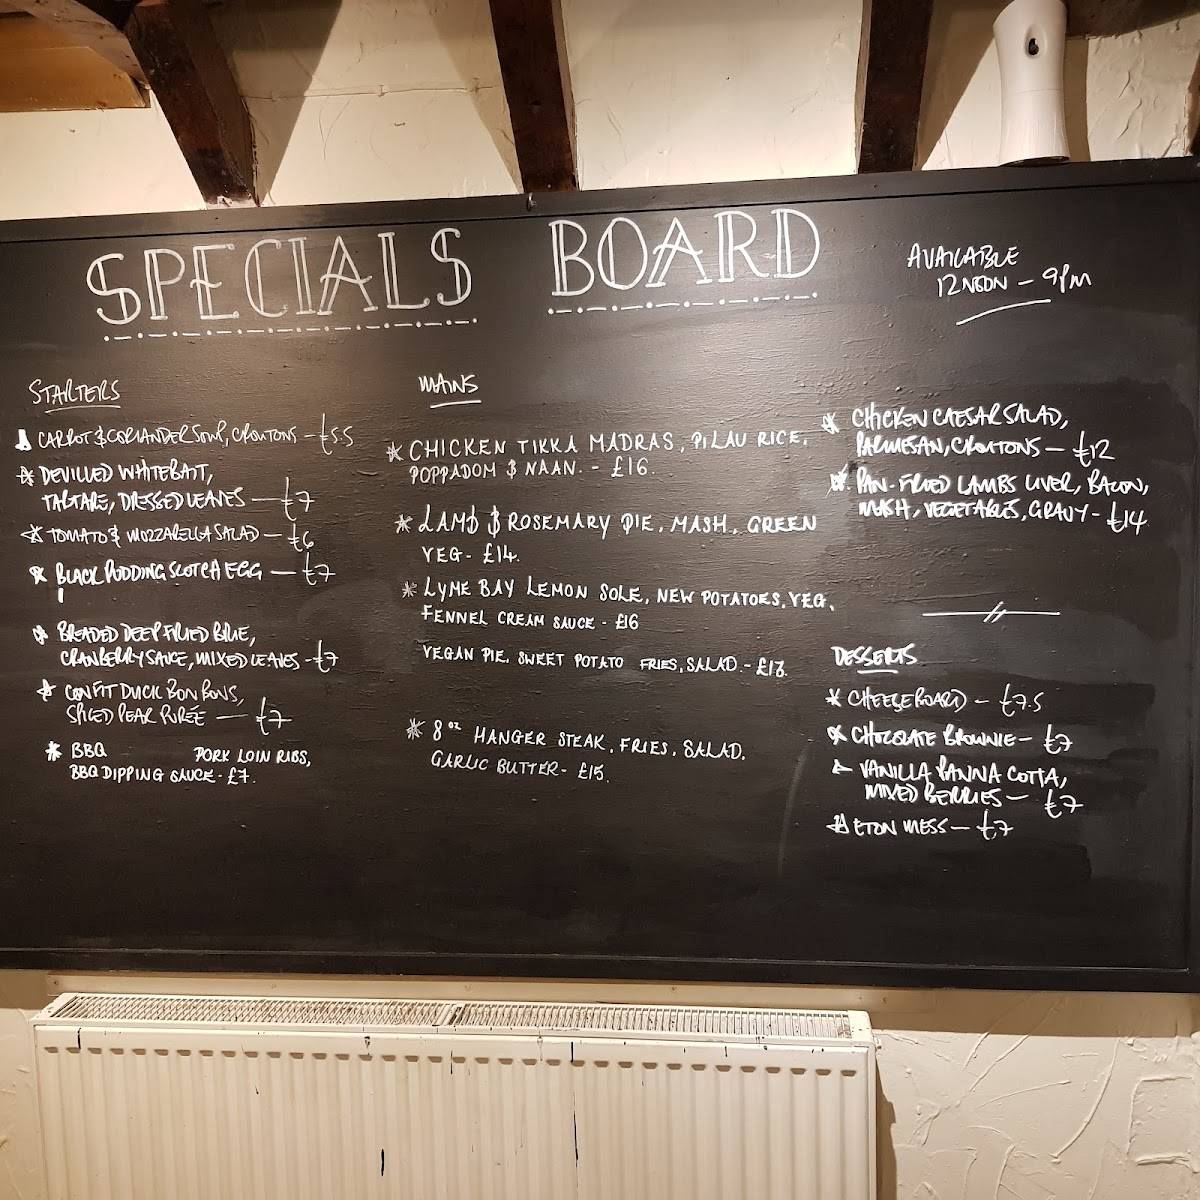 SPECIALS BOARD
AVAILABLE
12 NOON - 9PM
STARTERS
CARROT & CORIANDER SOUP, CROUTONS - £5.5
DEVILLED WHITEBAIT,
TARTARE, DRESSED LEAVES - £7
TOMATO & MOZZARELLA SALAD - £6
BLACK PUDDING SCOTCH EGG - £7
BREADED DEEP FRIED BRIE,
CRANBERRY SAUCE, MIXED LEAVES - £7
CONFIT DUCK BON BONS,
SPICED PEAR PURÉE - £7
BBQ PORK LOIN RIBS,
BBQ DIPPING SAUCE - £7.
MAINS
CHICKEN TIKKA MADRAS, PILAU RICE,
POPPADOM & NAAN. - £16.
LAMB & ROSEMARY PIE, MASH, GREEN
VEG - £14.
LYME BAY LEMON SOLE, NEW POTATOES, VEG,
FENNEL CREAM SAUCE - £16
VEGAN PIE, SWEET POTATO FRIES, SALAD - £13.
8oz HANGER STEAK, FRIES, SALAD,
GARLIC BUTTER - £15.
CHICKEN CAESAR SALAD,
PARMESAN, CROUTONS - £12
PAN-FRIED LAMBS LIVER, BACON,
MASH, VEGETABLES, GRAVY - £14
DESSERTS
CHEESEBOARD - £7.5
CHOCOLATE BROWNIE - £7
VANILLA PANNA COTTA,
MIXED BERRIES - £7
ETON MESS - £7